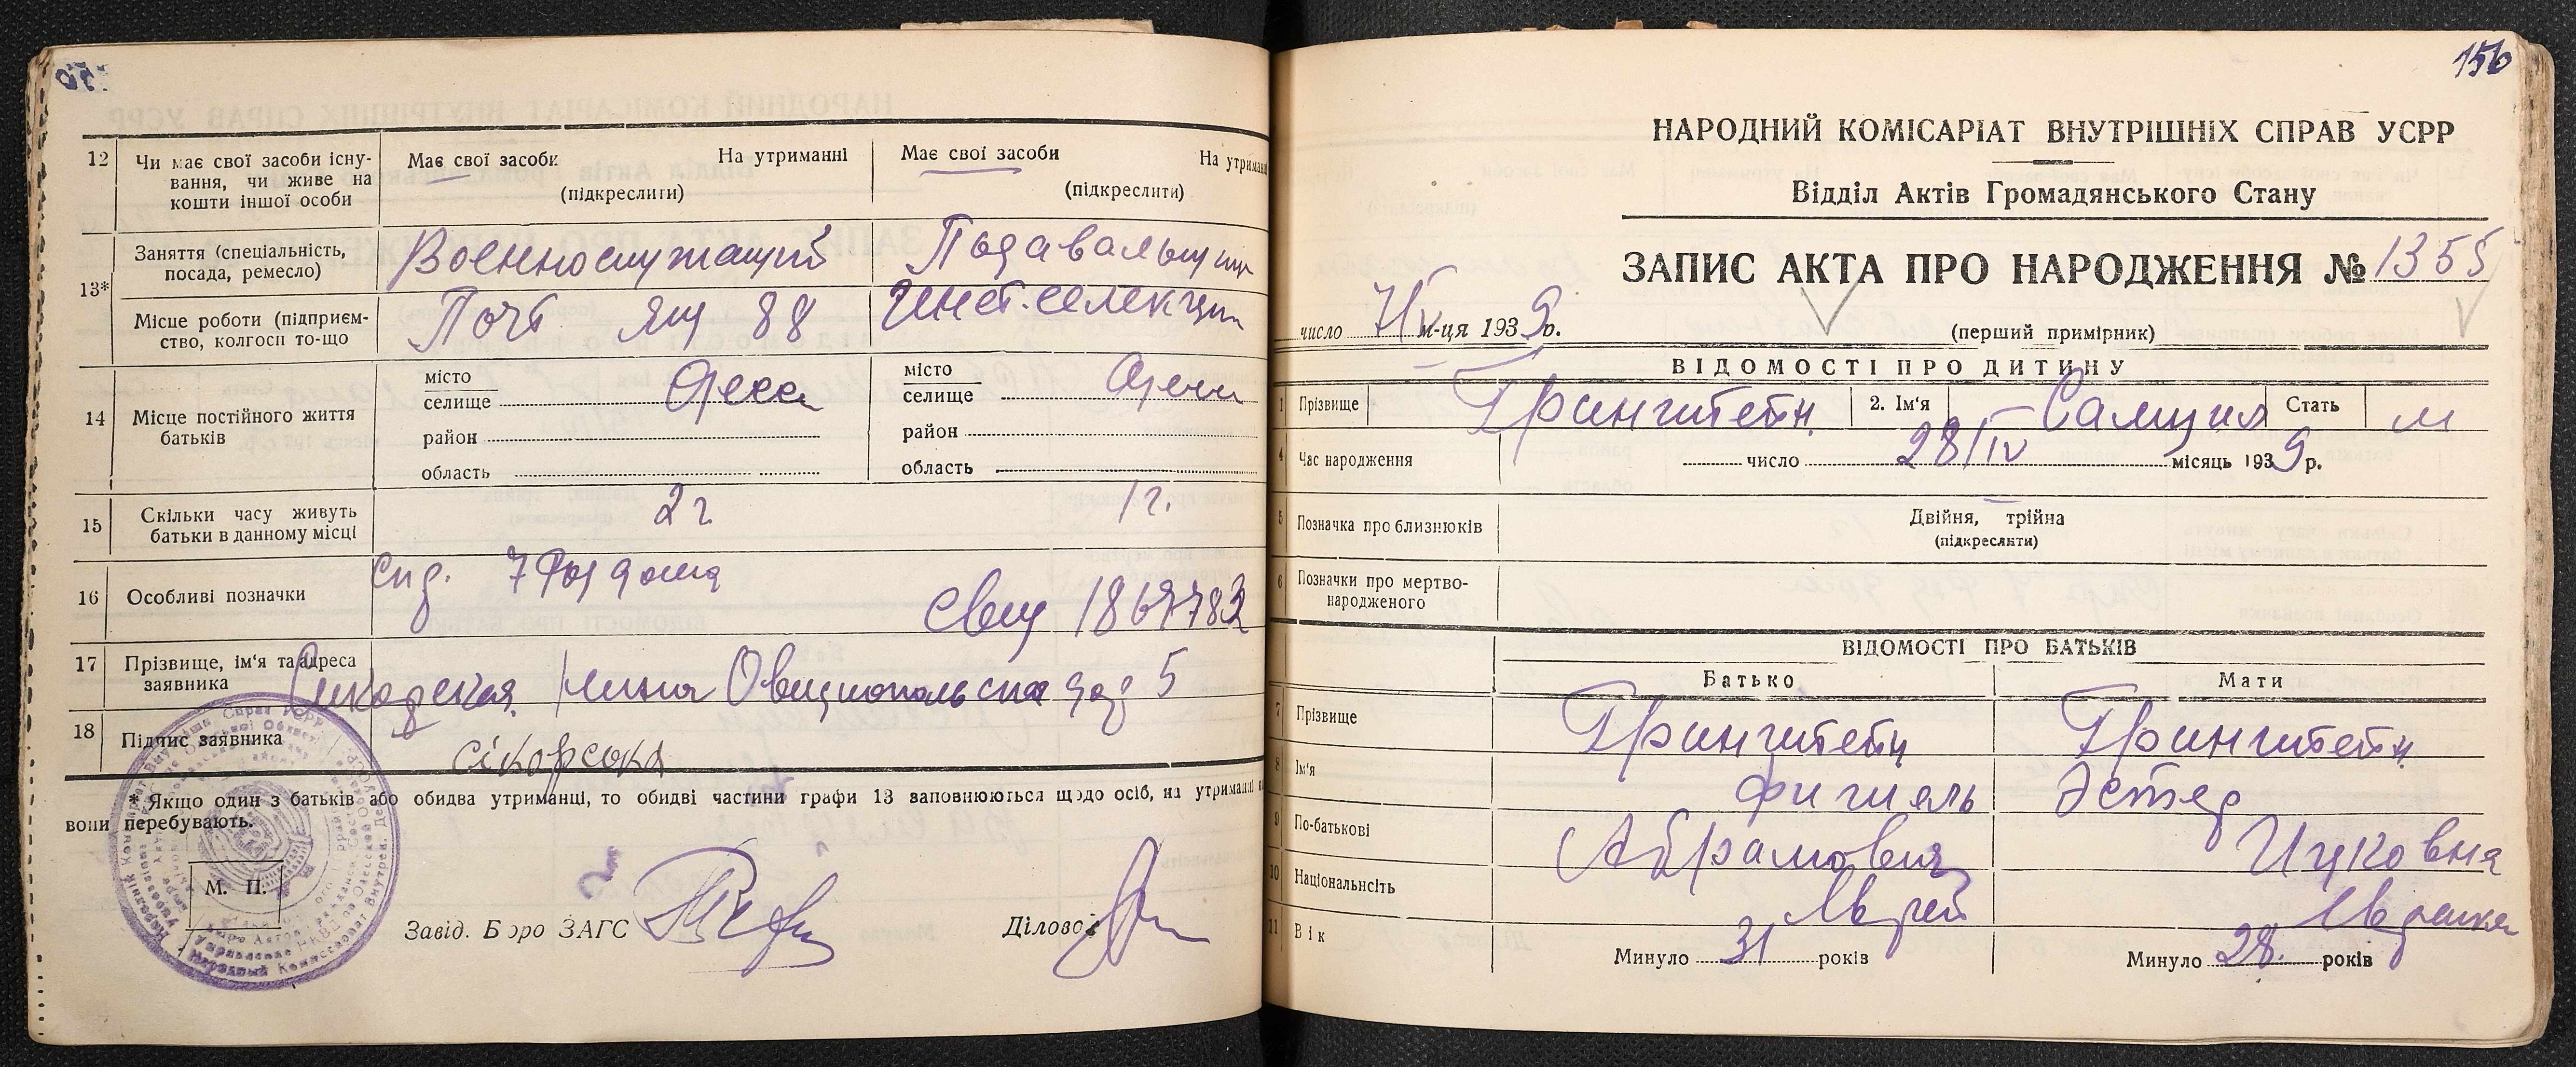 12 Чи має свої засоби існування, чи живе на кошти іншої особи
Має свої засоби На утриманні (підкреслити)
Має свої засоби На утриманні (підкреслити)
13* Заняття (спеціальність, посада, ремесло)
Военнослужащий
Подавальщица
Місце роботи (підприємство, колгосп то-що
Почт ящ 88
Инст. селекции
14 Місце постійного життя батьків
місто
селище Одесса
район
область
місто
селище Одесса
район
область
15 Скільки часу живуть батьки в данному місці
2 г.
1 г.
16 Особливі позначки
спд. 7 Род дома
свид 1867783
17 Прізвище, ім'я та адреса заявника
Сикорская Нина Овидиопольская дор 5
18 Підпис заявника
Сікорська
* Якщо один з батьків або обидва утриманці, то обидві частини графи 13 заповнюються щодо осіб, на утриманні
вони перебувають.
М. П.
Завід. Бюро ЗАГС
Діловод
156
НАРОДНИЙ КОМІСАРІАТ ВНУТРІШНІХ СПРАВ УСРР
Відділ Актів Громадянського Стану
ЗАПИС АКТА ПРО НАРОДЖЕННЯ № 1355
число 7/V м-ця 1939 р.
(перший примірник)
ВІДОМОСТІ ПРО ДИТИНУ
1 Прізвище Гринштейн 2. Ім'я Самуил Стать м
4 Час народження число 28/IV місяць 1939 р.
5 Позначка про близнюків
Двійня, трійна
(підкреслити)
6 Позначки про мертво-народженого
ВІДОМОСТІ ПРО БАТЬКІВ
Батько Мати
7 Прізвище Гринштейн Гринштейн
8 Ім'я Фишель Эстер
9 По-батькові Абрамович Ицковна
10 Національність Еврей Еврейка
11 Вік Минуло 31 років Минуло 28 років